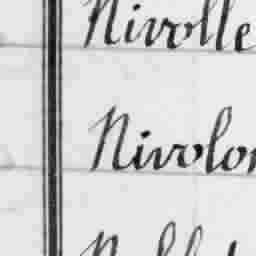 Nivolle
Nivolo